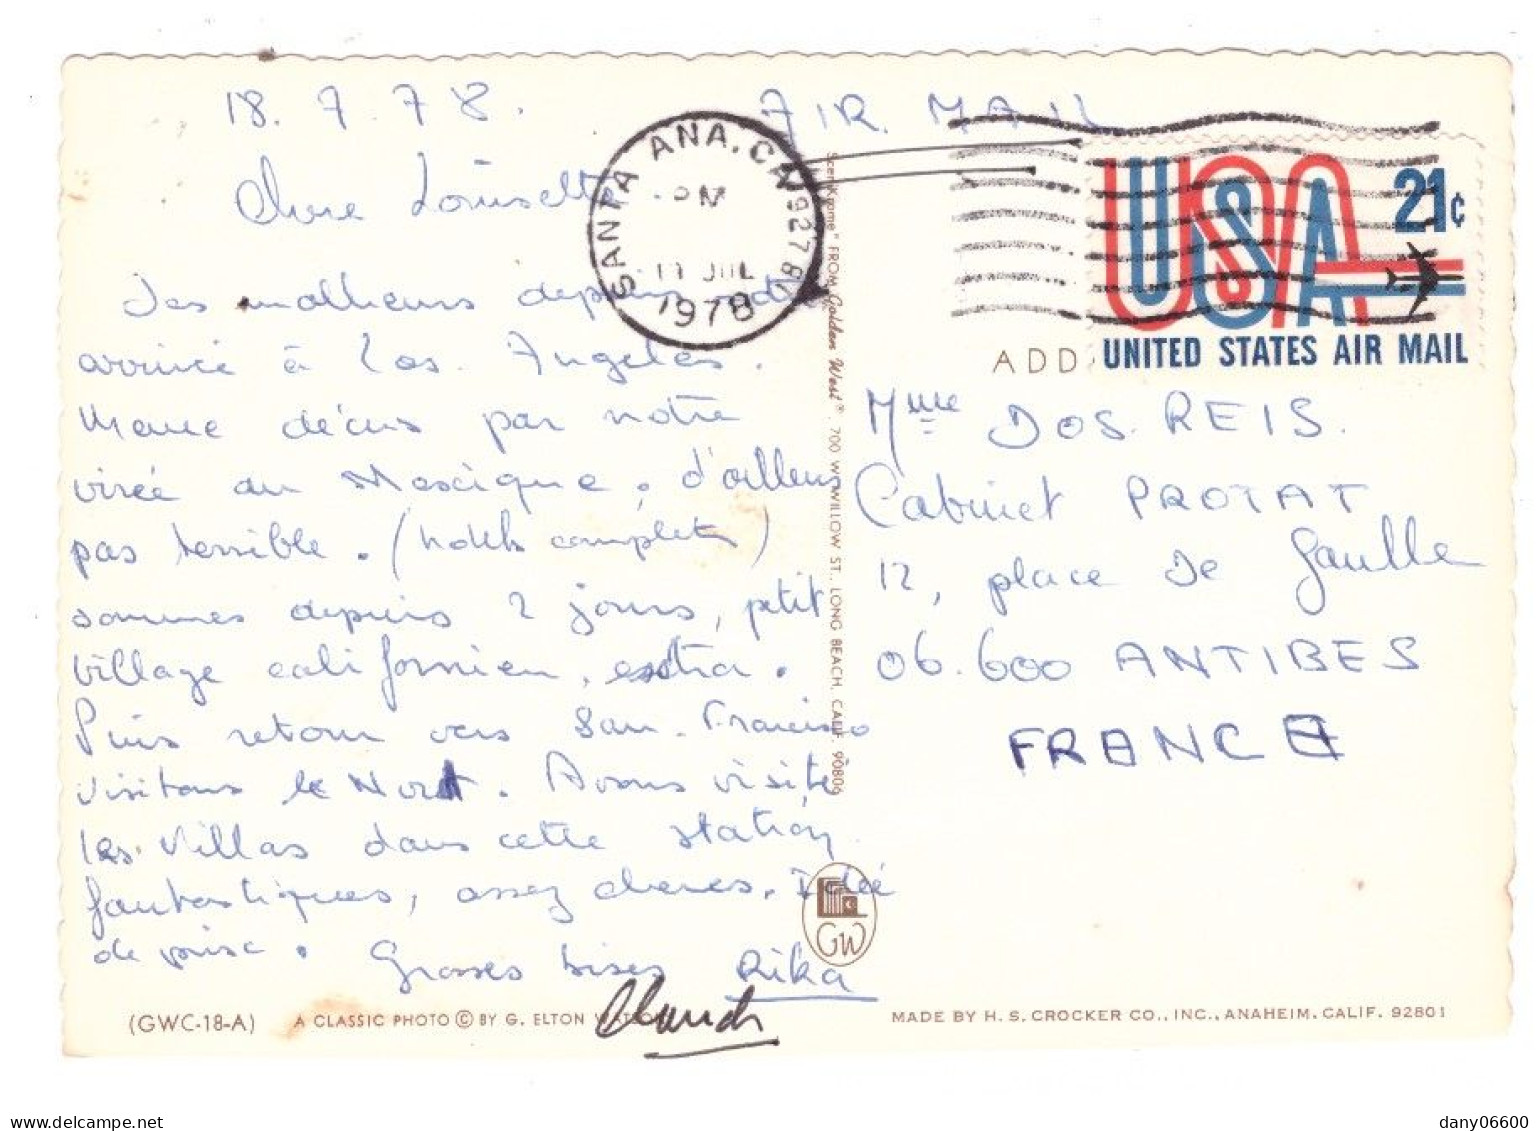 18.7.78.
AIR MAIL
Chère Louisette
SANTA ANA, CA 927
PM
JUL
1978
USA
21¢
UNITED STATES AIR MAIL
ADD
Des malheurs depuis notre
arrivée à Los Angeles.
Meme décus par notre
virée au Mexique, d'ailleurs
pas terrible. (hotels complets)
sommes depuis 2 jours, petit
village californien, extra.
Puis retour vers San-Francisco
visitons le Nord. Avons visité
les villas dans cette station
fantastiques, assez cheres. Idée
de prise. Grosses bises Rika
Claude
Mme DOS. REIS.
Cabinet PROTAT
12, place de Gaulle
06.600 ANTIBES
FRANCE
ScenKrome" FROM Golden West® 700 W. WILLOW ST., LONG BEACH, CALIF. 90806
GW
(GWC-18-A) A CLASSIC PHOTO © BY G. ELTON
MADE BY H. S. CROCKER CO., INC., ANAHEIM, CALIF. 92801
dany06600
delcampe.net